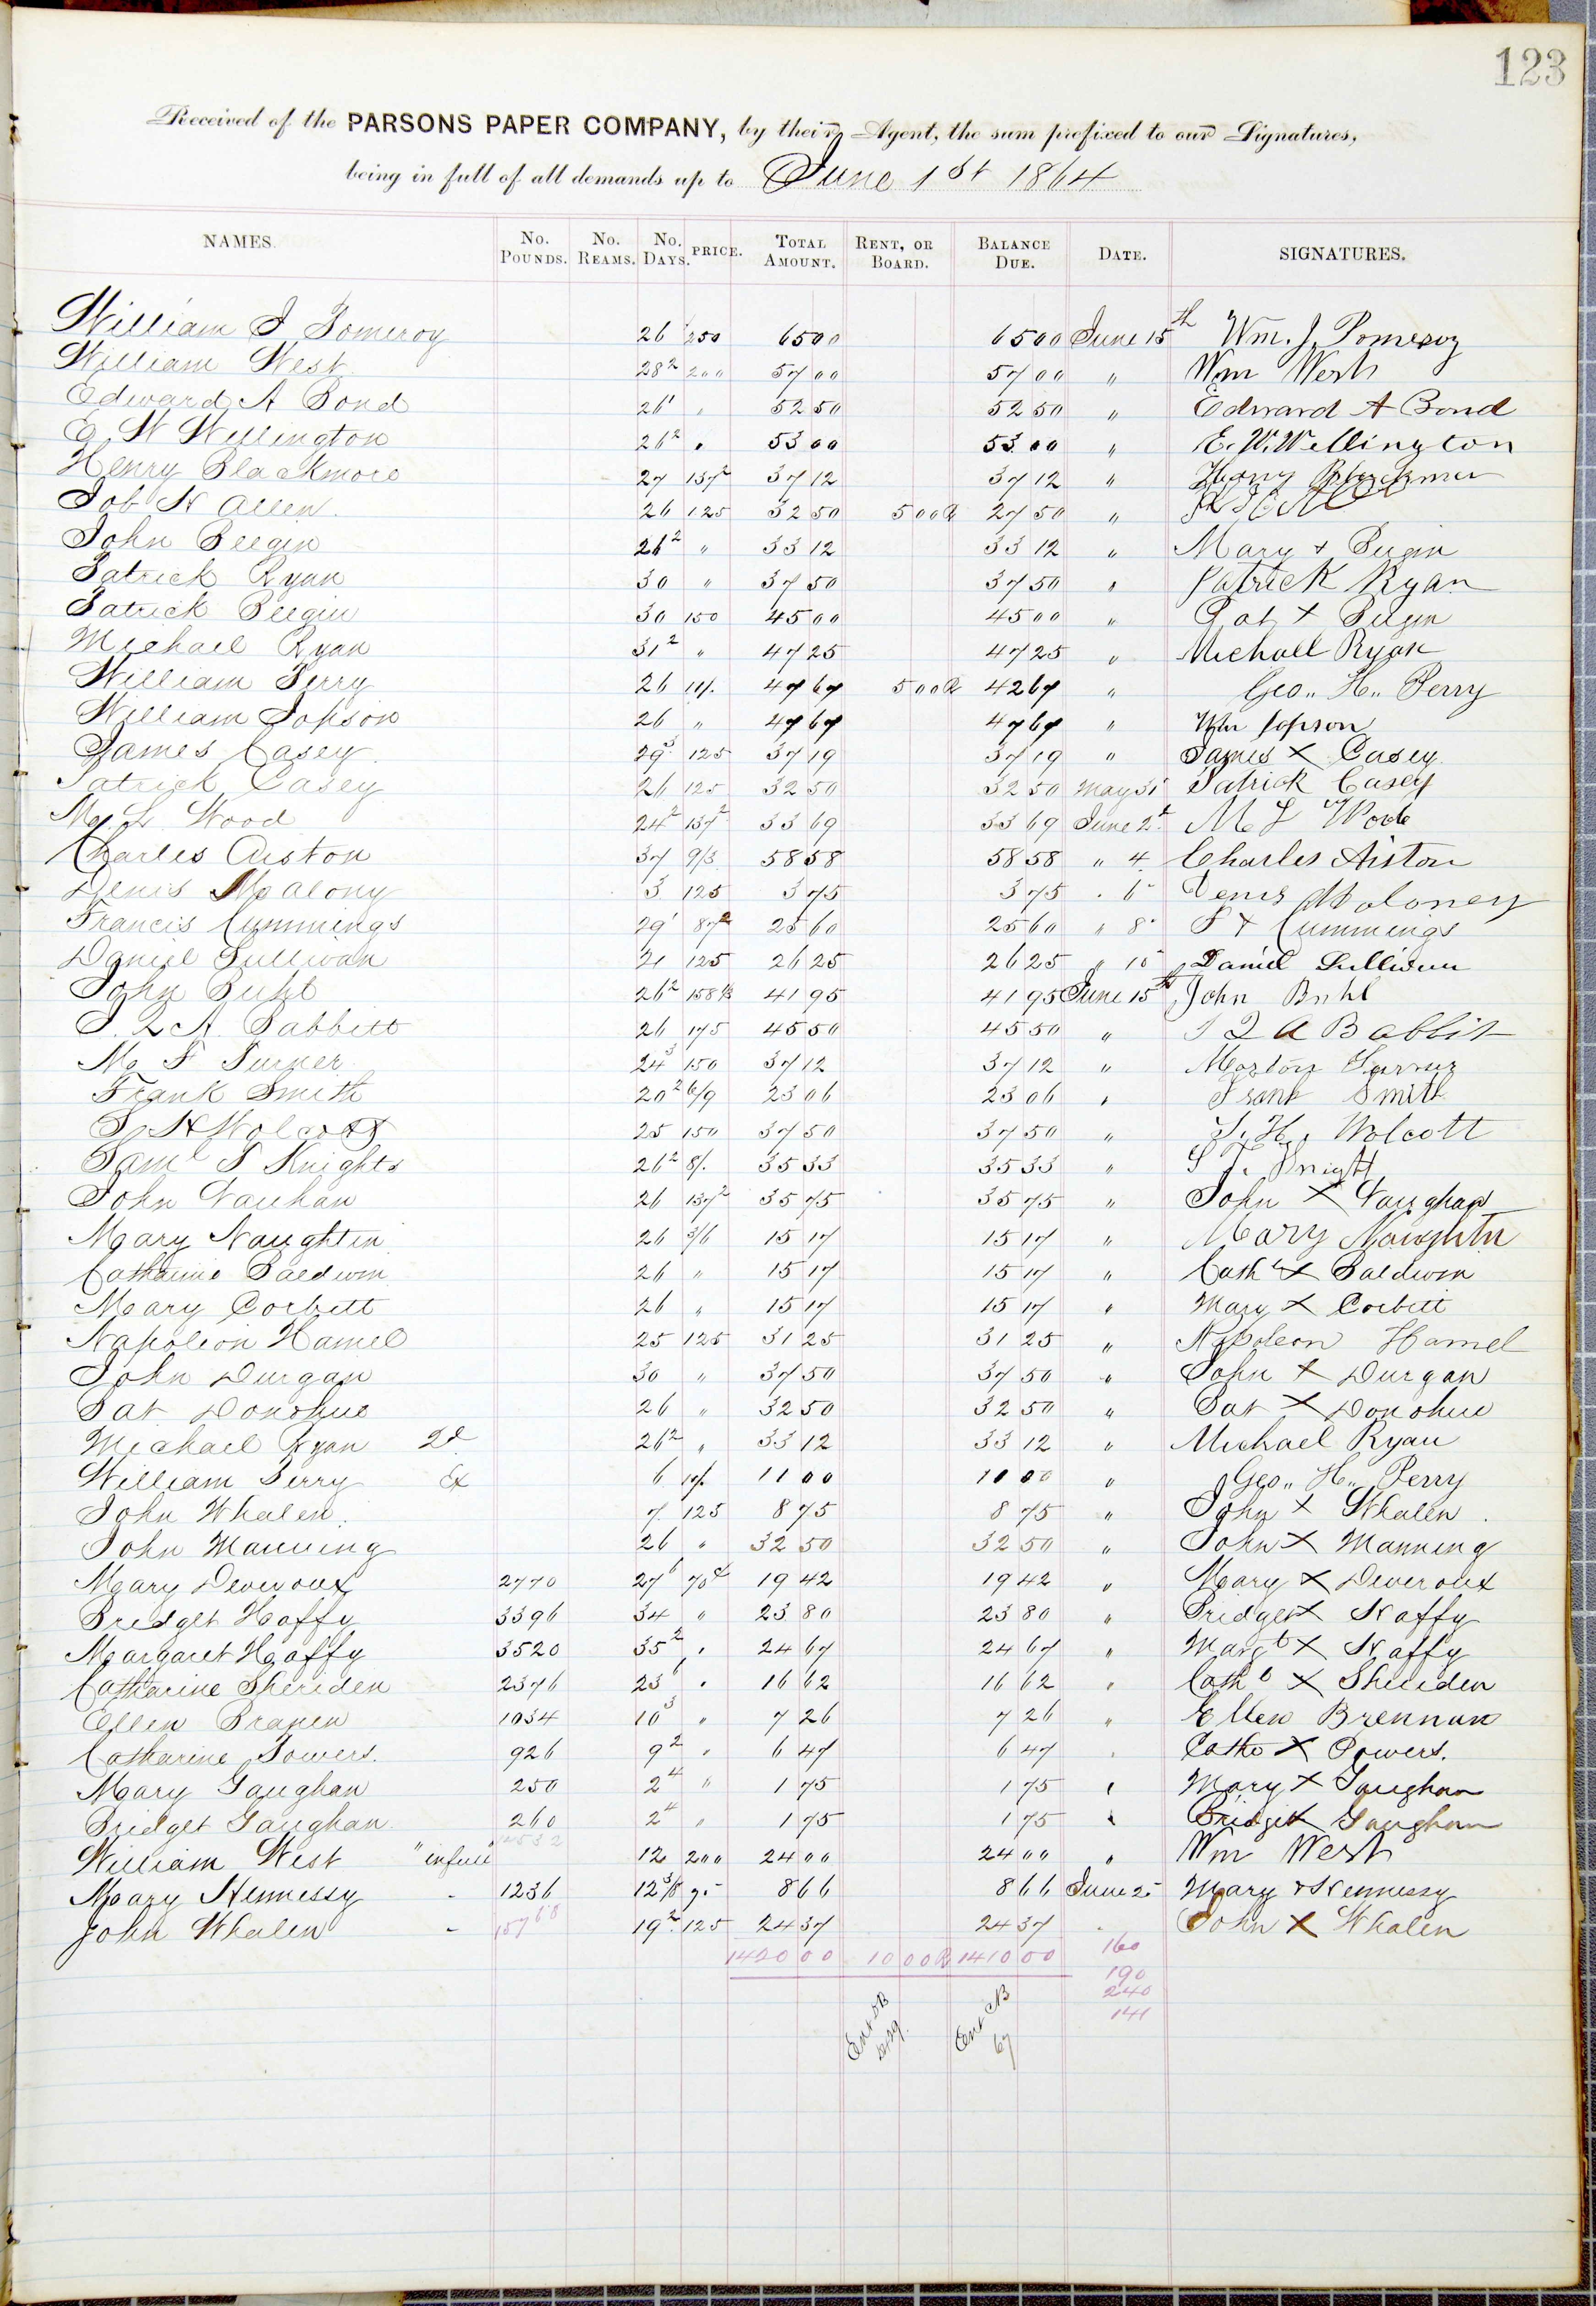 123
Received of the PARSONS PAPER COMPANY, by their Agent, the sum prefixed to our Signatures,
being in full of all demands up to June 1st 1864
NAMES. No. POUNDS. No. REAMS. No. DAYS. PRICE. TOTAL AMOUNT. RENT, OR BOARD. BALANCE DUE. DATE. SIGNATURES.
William J Pomeroy 26 250 65 00 65 00 June 15th Wm. J. Pomeroy
William West 28 2 200 57 00 57 00 " Wm West
Edward A Bond 26 1 " 52 50 52 50 " Edward A Bond
E W Wellington 26 2 " 53 00 53 00 " E. W. Wellington
Henry Blackmore 27 137 2 37 12 37 12 " Henry
Job H Allen 26 125 32 50 5 00 R 27 50 "
John Beegin 26 2 " 33 12 33 12 " Mary +
Patrick Ryan 30 " 37 50 37 50 " Patrick Ryan
Patrick Beegin 30 150 45 00 45 00 " Pat X
Michael Ryan 31 2 " 47 25 47 25 " Michael Ryan
William Perry 26 11/. 47 67 5 00 R 42 67 " Geo.. H.. Perry
William Jopson 26 " 47 67 47 67 " Wm Jopson
James Casey 29 3 125 37 19 37 19 " James X Casey
Patrick Casey 26 125 32 50 32 50 May 31 Patrick Casey
M. L. Wood 24 2 137 2 33 69 33 69 June 2d M L Wood
Charles Aiston 37 9/3 58 58 58 58 " 4 Charles Aiston
Denis Malony 3 125 3 75 3 75 " 6 Denis Moloney
Francis Cummings 29 1 87 2 25 60 25 60 " 8 F X Cummings
Daniel Sullivan 21 125 26 25 26 25 " 10 Daniel Sullivan
John Buhl 26 2 158 1/3 41 95 41 95 June 15th John Buhl
J. Q A. Babbett 26 175 45 50 45 50 " J Q A Babbit
M F Turner 24 3 150 37 12 37 12 " Turner
Frank Smith 20 2 6/9 23 06 23 06 " Frank Smith
S H Wolcott 25 150 37 50 37 50 " S. H. Wolcott
Saml T Knights 26 2 8/. 35 33 35 33 " S T. Knight
John Vauhan 26 137 2 35 75 35 75 " John X Vaughan
Mary Naughtin 26 3/6 15 17 15 17 " Mary Naughtin
Catharine Baldwin 26 " 15 17 15 17 " Cathe X Baldwin
Mary Corbett 26 " 15 17 15 17 " Mary X Corbett
Napoleon Hamel 25 125 31 25 31 25 " Napoleon Hamel
John Durgan 30 " 37 50 37 50 " John X Durgan
Pat Donohue 26 " 32 50 32 50 " Pat X Donohue
Michael Ryan 2d 26 2 " 33 12 33 12 " Michael Ryan
William Perry Ex 6 11/. 11 00 11 00 " Geo.. H.. Perry
John Whalen 7 125 8 75 8 75 " John X Whalen
John Manning 26 " 32 50 32 50 " John X Manning
Mary Deveroux 2770 27 6 70c 19 42 19 42 " Mary X Deveroux
Bridget Haffy 3396 34 " 23 80 23 80 " Bridget X Haffy
Margaret Haffy 3520 35 2 " 24 67 24 67 " Margt X Haffy
Catharine Sheriden 2376 23 6 " 16 62 16 62 " Cathe X Sheriden
Ellen Branen 1034 10 3 " 7 26 7 26 " Ellen Brennan
Catharine Powers. 926 9 2 " 6 47 6 47 " Cathe X Powers.
Mary Gaughan 250 2 4 " 1 75 1 75 " Mary X Gaughan
Bridget Gaughan 260 2 4 " 1 75 1 75 " Bridget X Gaughan
14532
William West "in full" 12 200 24 00 24 00 " Wm West
Mary Hennessy " 1236 12 3/8 70 8 66 8 66 June 25 Mary X Hennessy
John Whalen " 15768 19 2 125 24 37 24 37 " John X Whalen
1420 00 10 00 R 1410 00 160
190
240
141
Ent CB
67